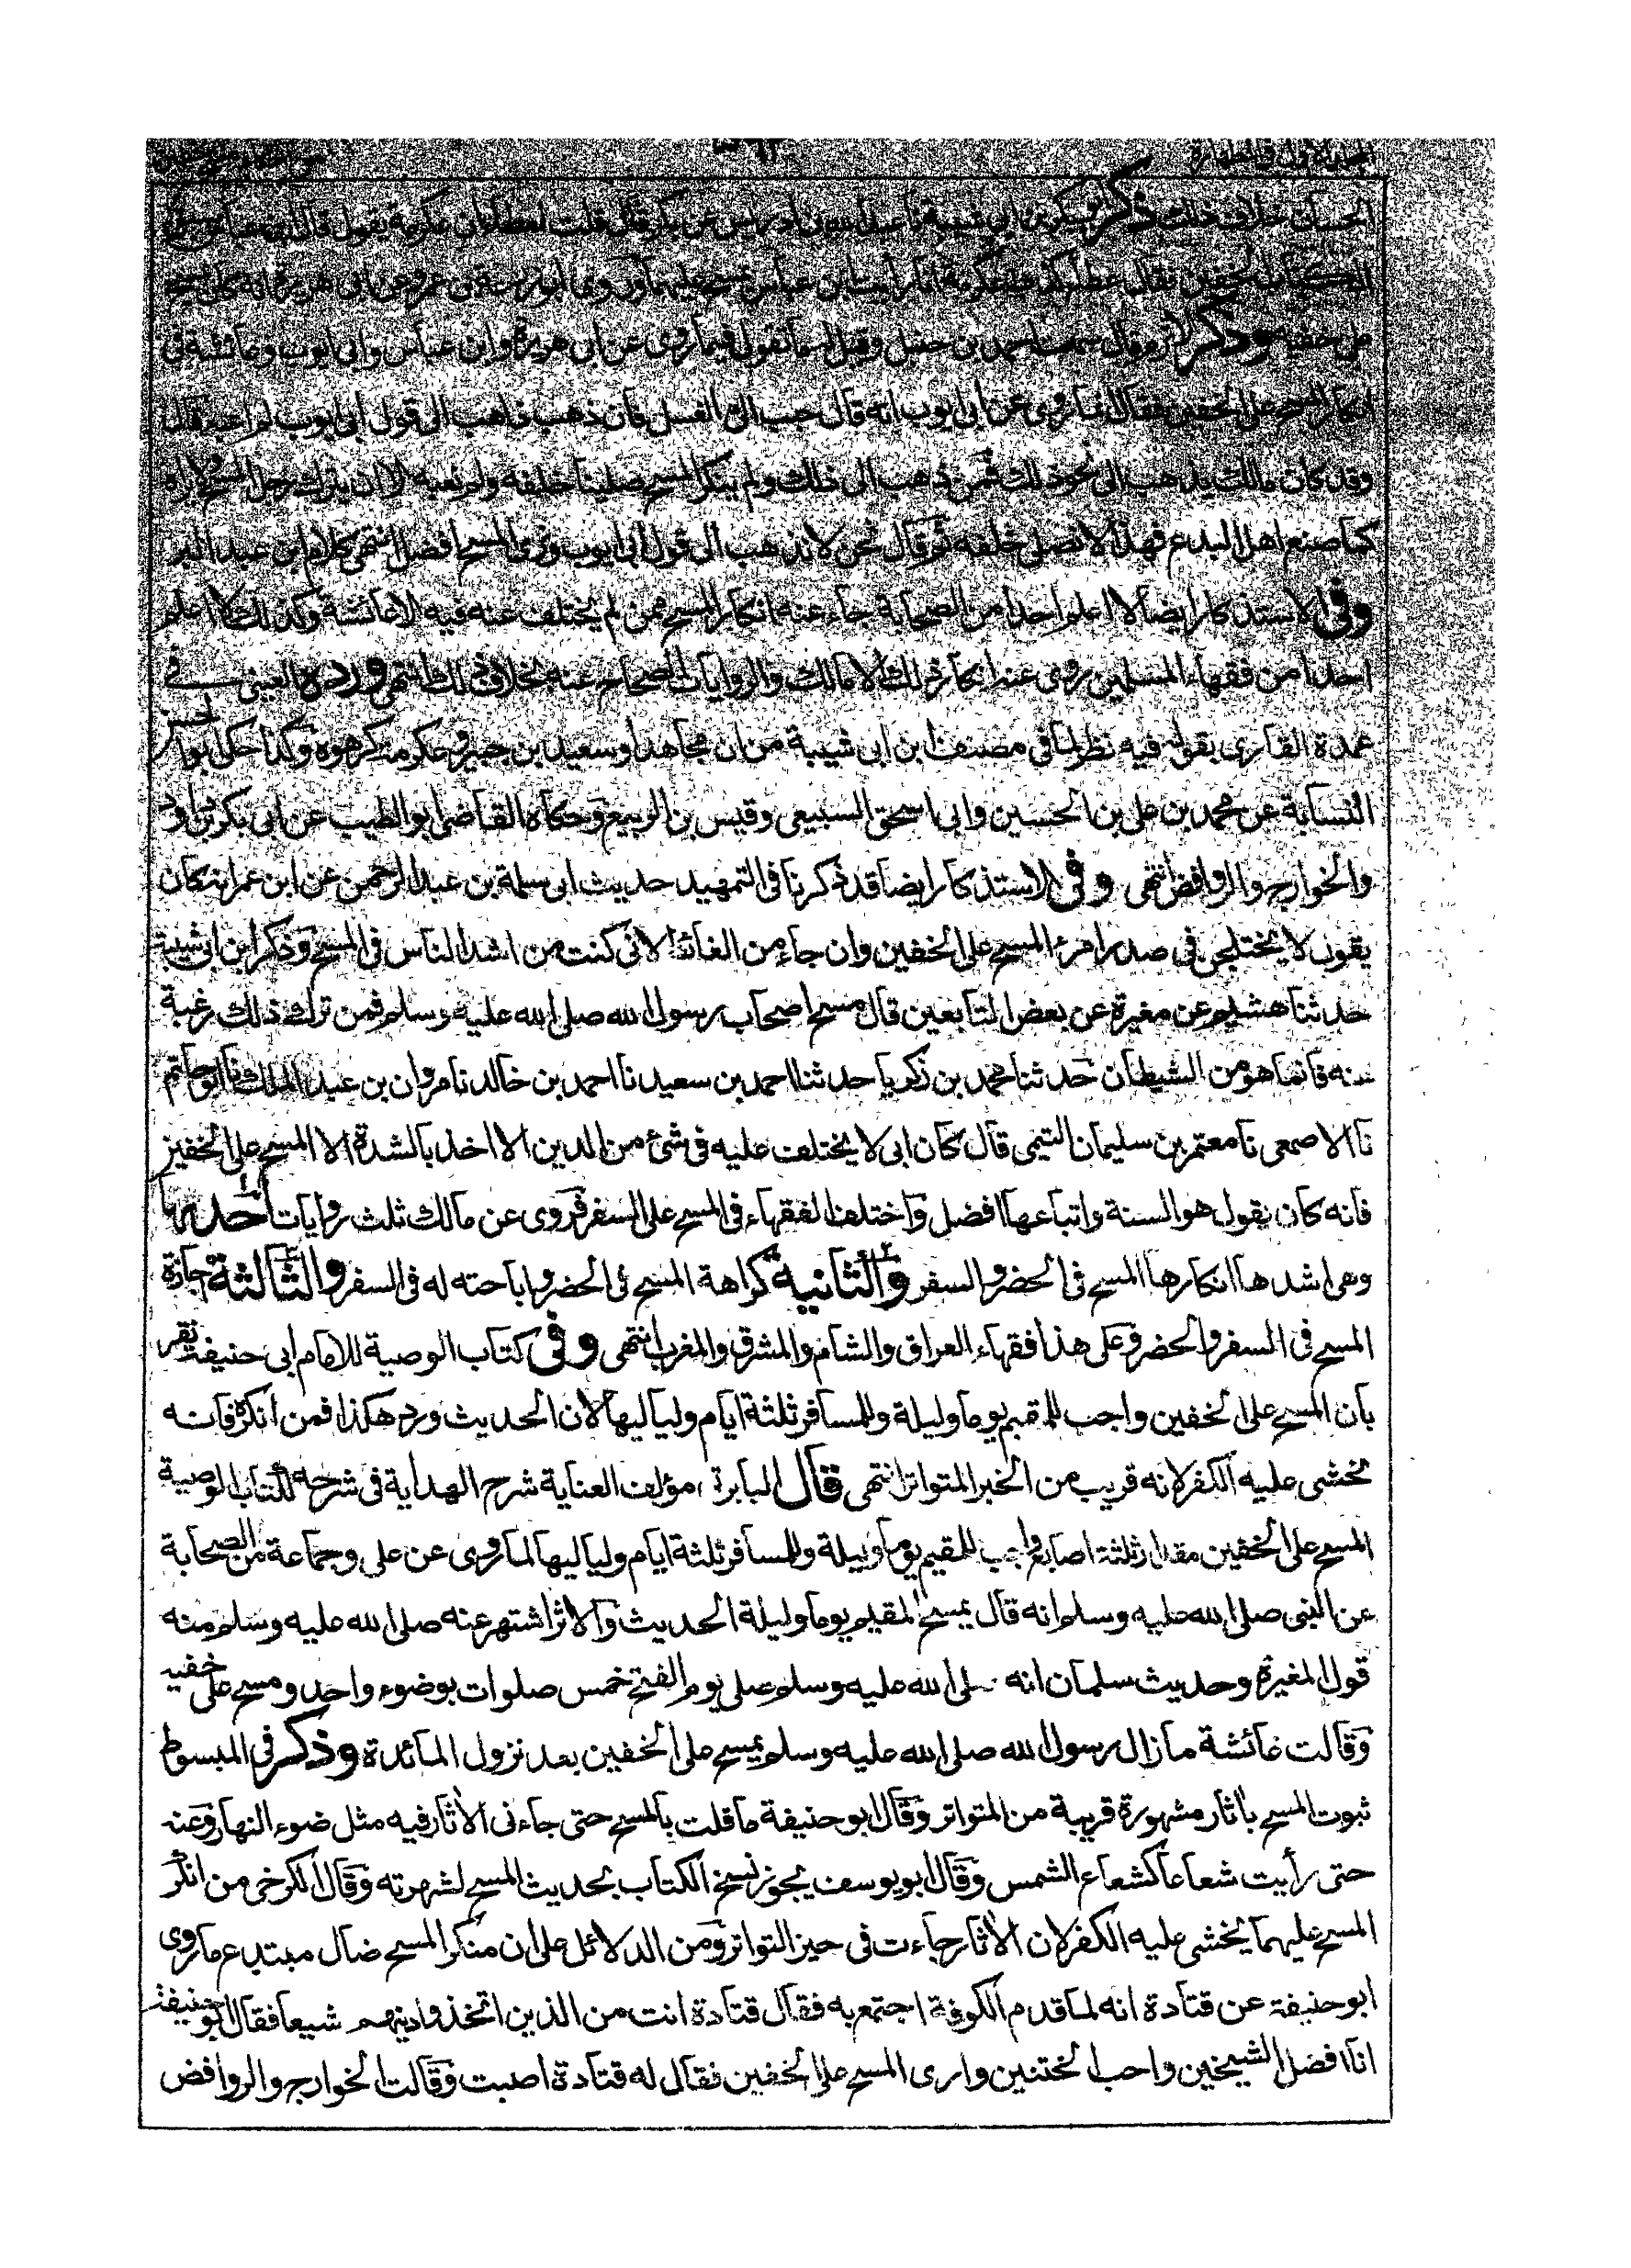 الحسان خلاف ذلك ذكر ابو بكر بن ابي شيبة نا عبد الله بن ادريس عن فطر قال قلت لعطاء ان عكرمة يقول قال ابن عباس سبق
الكتاب الخفين فقال عطاء كذب عكرمة انا رأيت ابن عباس يمسح عليهما وروى ابو زرعة بن عمرو عن ابي هريرة انه كان يمسح
على خفيه وذكر الاثرم قال سمعت احمد بن حنبل وقيل له ما تقول فيما روى عن ابي هريرة وابن عباس وابي ايوب وعائشة في
انكار المسح على الخفين فقال انما روى عن ابي ايوب انه قال حبب الى الغسل فان ذهب ذاهب الى قول ابي ايوب لم اعبه قال
وقد كان مالك يذهب الى نحو ذلك فمن ذهب الى ذلك ولم ينكر المسح صلينا خلفه ولم نعبه الا ان يترك رجل المسح ولا يراه
كما صنع اهل البدع فهذا لا نصلى خلفه ثم قال نحن لا نذهب الى قول ابي ايوب ونرى المسح افضل انتهى كلام ابن عبد البر
وفي الاستذكار ايضا لا اعلم احدا من الصحابة جاء عنه انكار المسح ممن لم يختلف عنه فيه الا عائشة وكذلك لا اعلم
احدا من فقهاء المسلمين روى عنه انكار ذلك الا مالك والروايات الصحاح عنه بخلاف ذلك انتهى ورده العينى في
عمدة القارى بقوله فيه نظر لما في مصنف ابن ابي شيبة من ان مجاهدا وسعيد بن جبير وعكرمة كرهوه وكذا حكى ابو الحسن
النسابة عن محمد بن على بن الحسين وابي اسحق السبيعى وقيس بن الربيع وحكاه القاضى ابو الطيب عن ابي بكر بن داود
والخوارج والروافض انتهى وفي الاستذكار ايضا قد ذكرنا في التمهيد حديث ابي سلمة بن عبد الرحمن عن ابن عمر انه كان
يقول لا يختلجن في صدر امرء المسح على الخفين وان جاء من الغائط لانى كنت من اشد الناس في المسح وذكر ابن ابي شيبة
حدثنا هشيم عن مغيرة عن بعض التابعين قال مسح اصحاب رسول الله صلى الله عليه وسلم فمن ترك ذلك رغبة
عنه فانما هو من الشيطان حدثنا محمد بن زكريا حدثنا احمد بن سعيد نا احمد بن خالد نا مروان بن عبد الملك نا ابو حاتم
نا الاصمعى نا معتمر بن سليمان التيمى قال كان ابى لا يختلف عليه في شئ من الدين الا اخذ بالشدة الا المسح على الخفين
فانه كان يقول هو السنة واتباعها افضل واختلف الفقهاء في المسح على السفر فروى عن مالك ثلث روايات احدها
وهى اشدها انكارها المسح في الحضر والسفر والثانية كراهة المسح في الحضر واباحته له في السفر والثالثة اجازة
المسح في السفر والحضر وعلى هذا فقهاء العراق والشام والمشرق والمغرب انتهى وفي كتاب الوصية للامام ابي حنيفة نقر
بان المسح على الخفين واجب للمقيم يوما وليلة وللمسافر ثلثة ايام ولياليها لان الحديث ورد هكذا فمن انكره فانه
يخشى عليه الكفر لانه قريب من الخبر المتواتر انتهى قال البابرتى مؤلف العناية شرح الهداية في شرحه لكتاب الوصية
المسح على الخفين مقدار ثلثة اصابع واجب للمقيم يوما وليلة وللمسافر ثلثة ايام ولياليها لما روى عن على وجماعة من الصحابة
عن النبى صلى الله عليه وسلم انه قال يمسح المقيم يوما وليلة الحديث والاثر اشتهر عنه صلى الله عليه وسلم منه
قول المغيرة وحديث سلمان انه صلى الله عليه وسلم صلى يوم الفتح خمس صلوات بوضوء واحد ومسح على خفيه
وقالت عائشة ما زال رسول الله صلى الله عليه وسلم يمسح على الخفين بعد نزول المائدة وذكر في المبسوط
ثبوت المسح باثار مشهورة قريبة من المتواتر وقال ابو حنيفة ما قلت بالمسح حتى جاءنى الاثار فيه مثل ضوء النهار وعنه
حتى رأيت شعاعا كشعاع الشمس وقال ابو يوسف يجوز نسخ الكتاب بحديث المسح لشهرته وقال الكرخى من انكر
المسح عليهما يخشى عليه الكفر لان الاثار جاءت في حيز التواتر ومن الدلائل على ان منكر المسح ضال مبتدع ما روى
ابو حنيفة عن قتادة انه لما قدم الكوفة اجتمع به فقال قتادة انت من الذين اتخذوا دينهم شيعا فقال ابو حنيفة
انا افضل الشيخين واحب الختنين وارى المسح على الخفين فقال له قتادة اصبت وقالت الخوارج والروافض